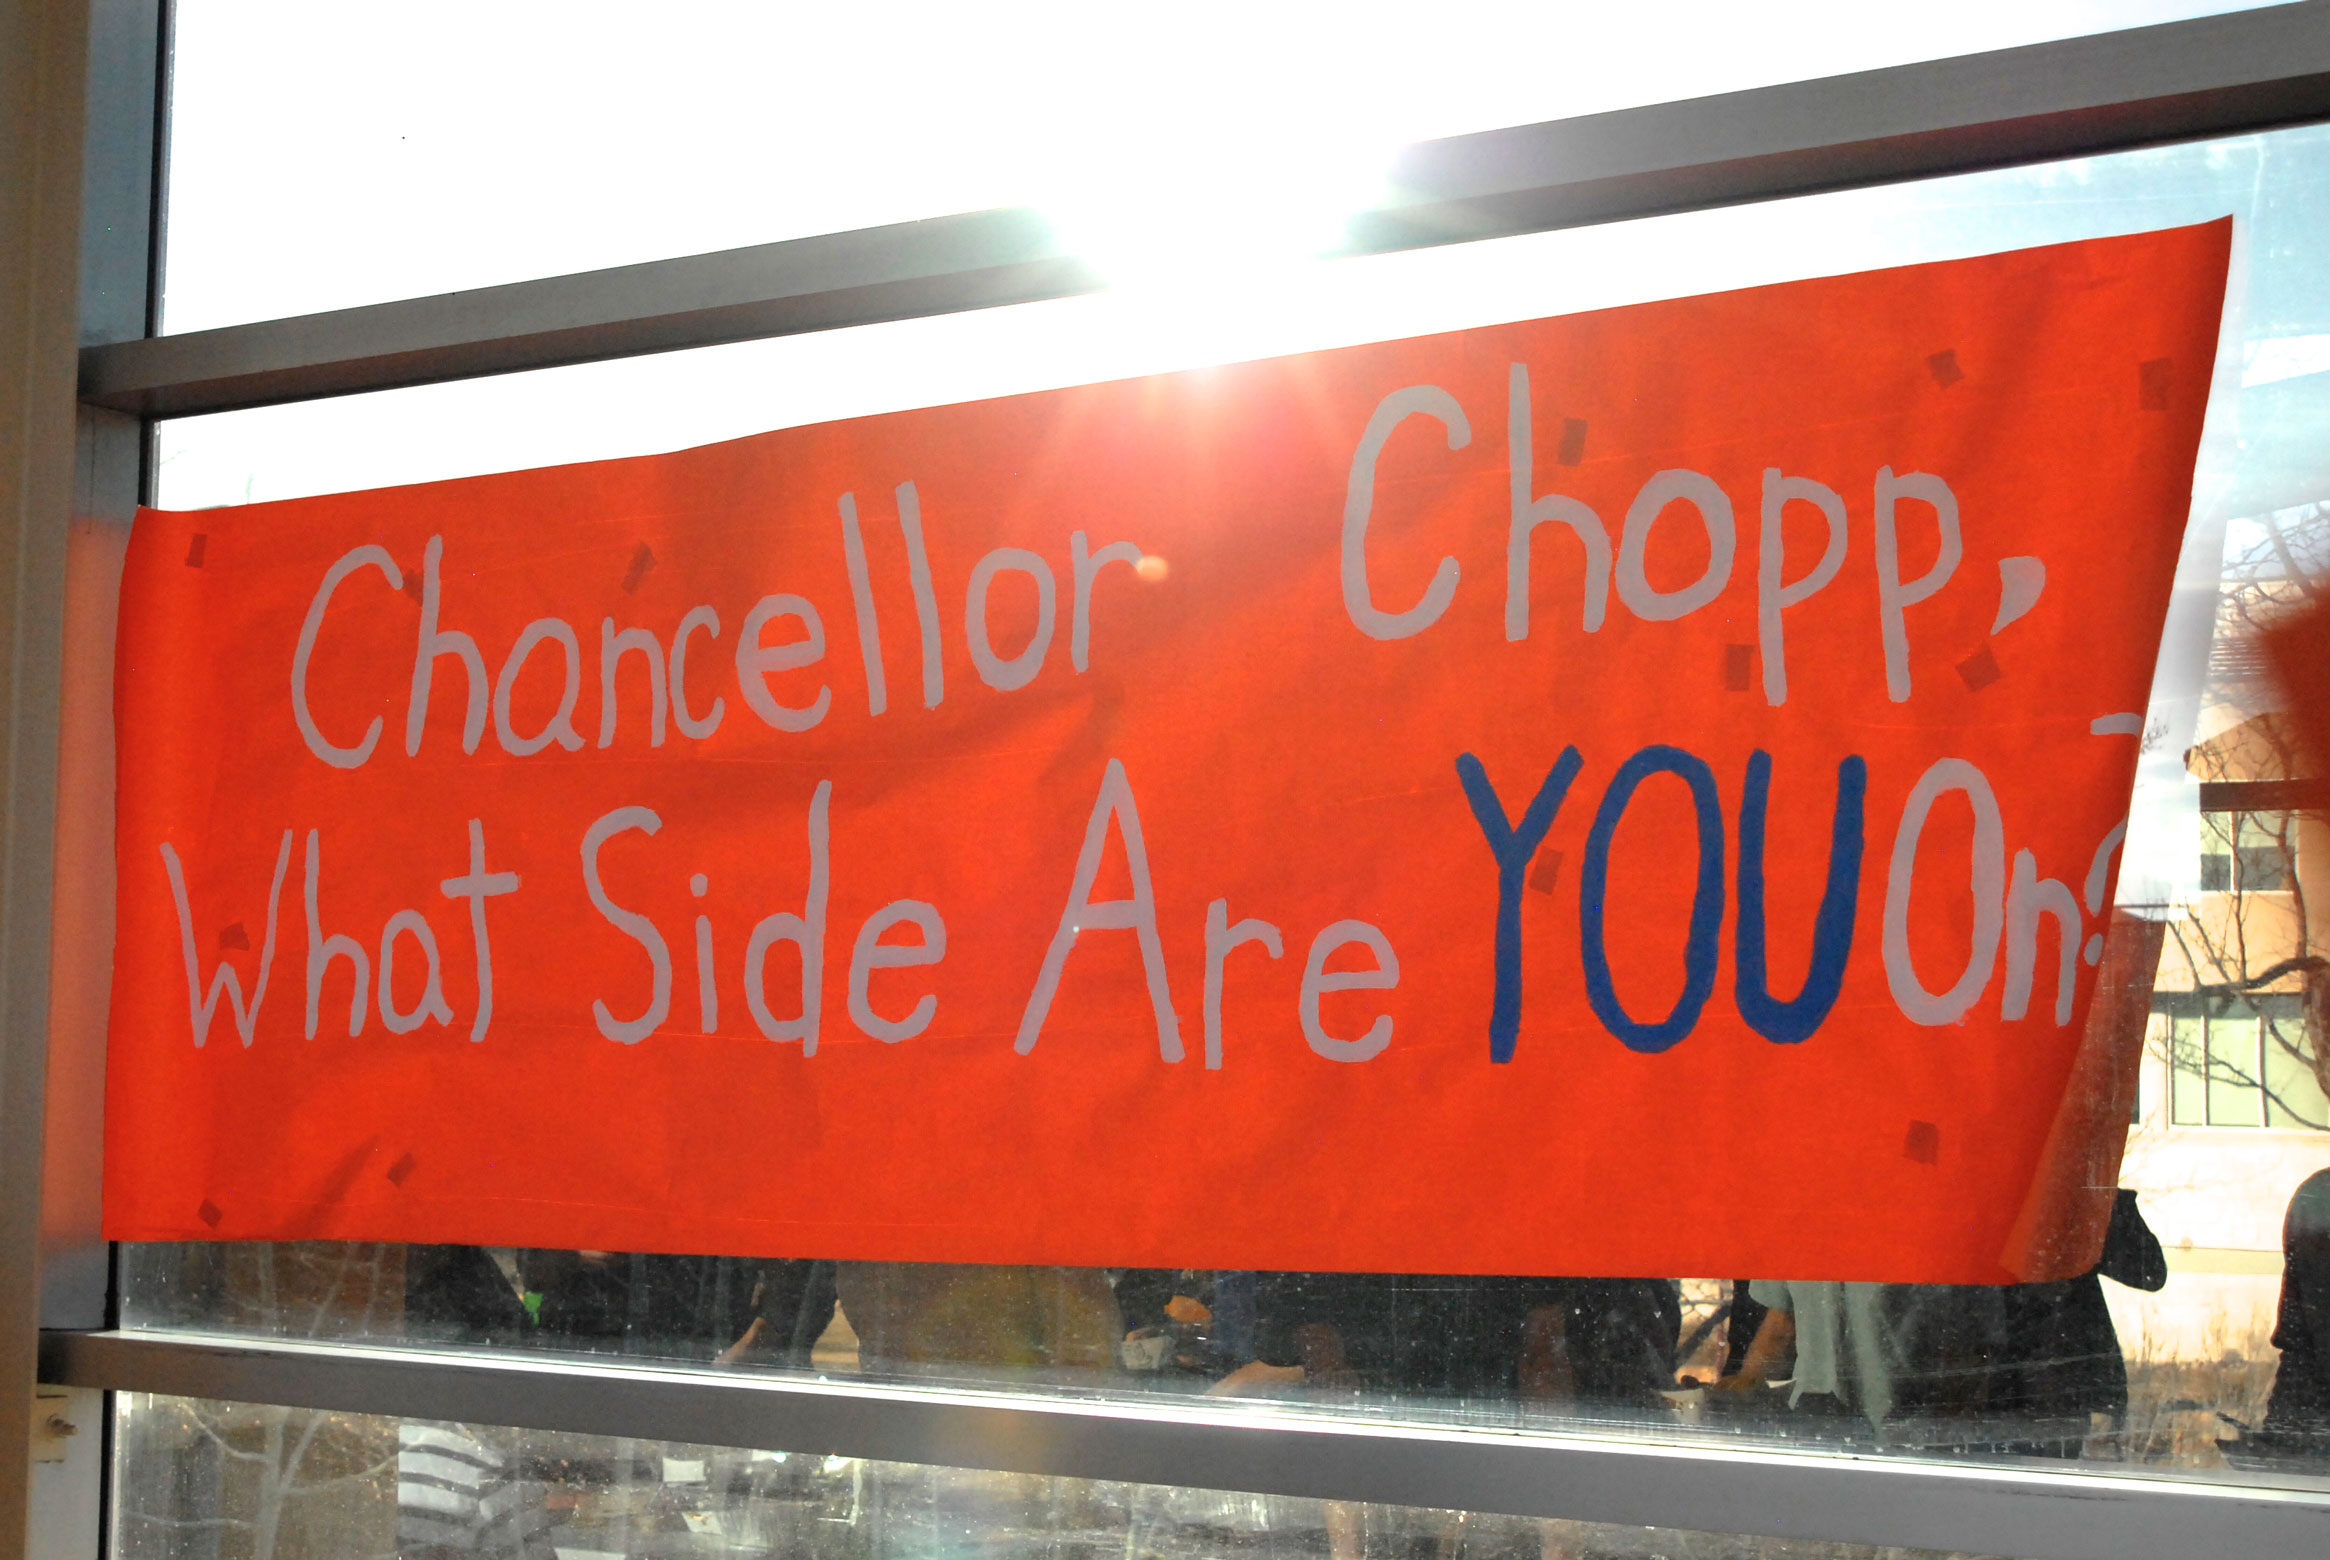 Chancellor Chopp,
What Side Are YOU On?